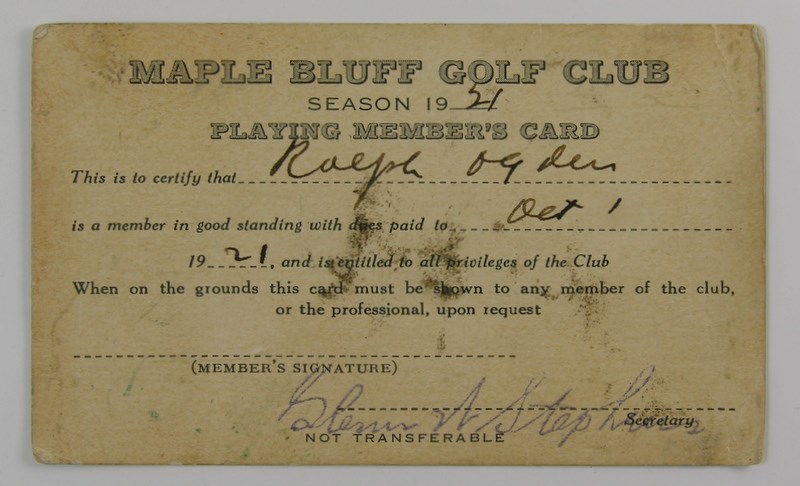 MAPLE BLUFF GOLF CLUB
SEASON 1921
PLAYING MEMBER'S CARD
This is to certify that Ralph Ogden
is a member in good standing with dues paid to Oct 1
1921, and is entitled to all privileges of the Club
When on the grounds this card must be shown to any member of the club,
or the professional, upon request
(MEMBER'S SIGNATURE)
Glenn W Stephens
Secretary
NOT TRANSFERABLE